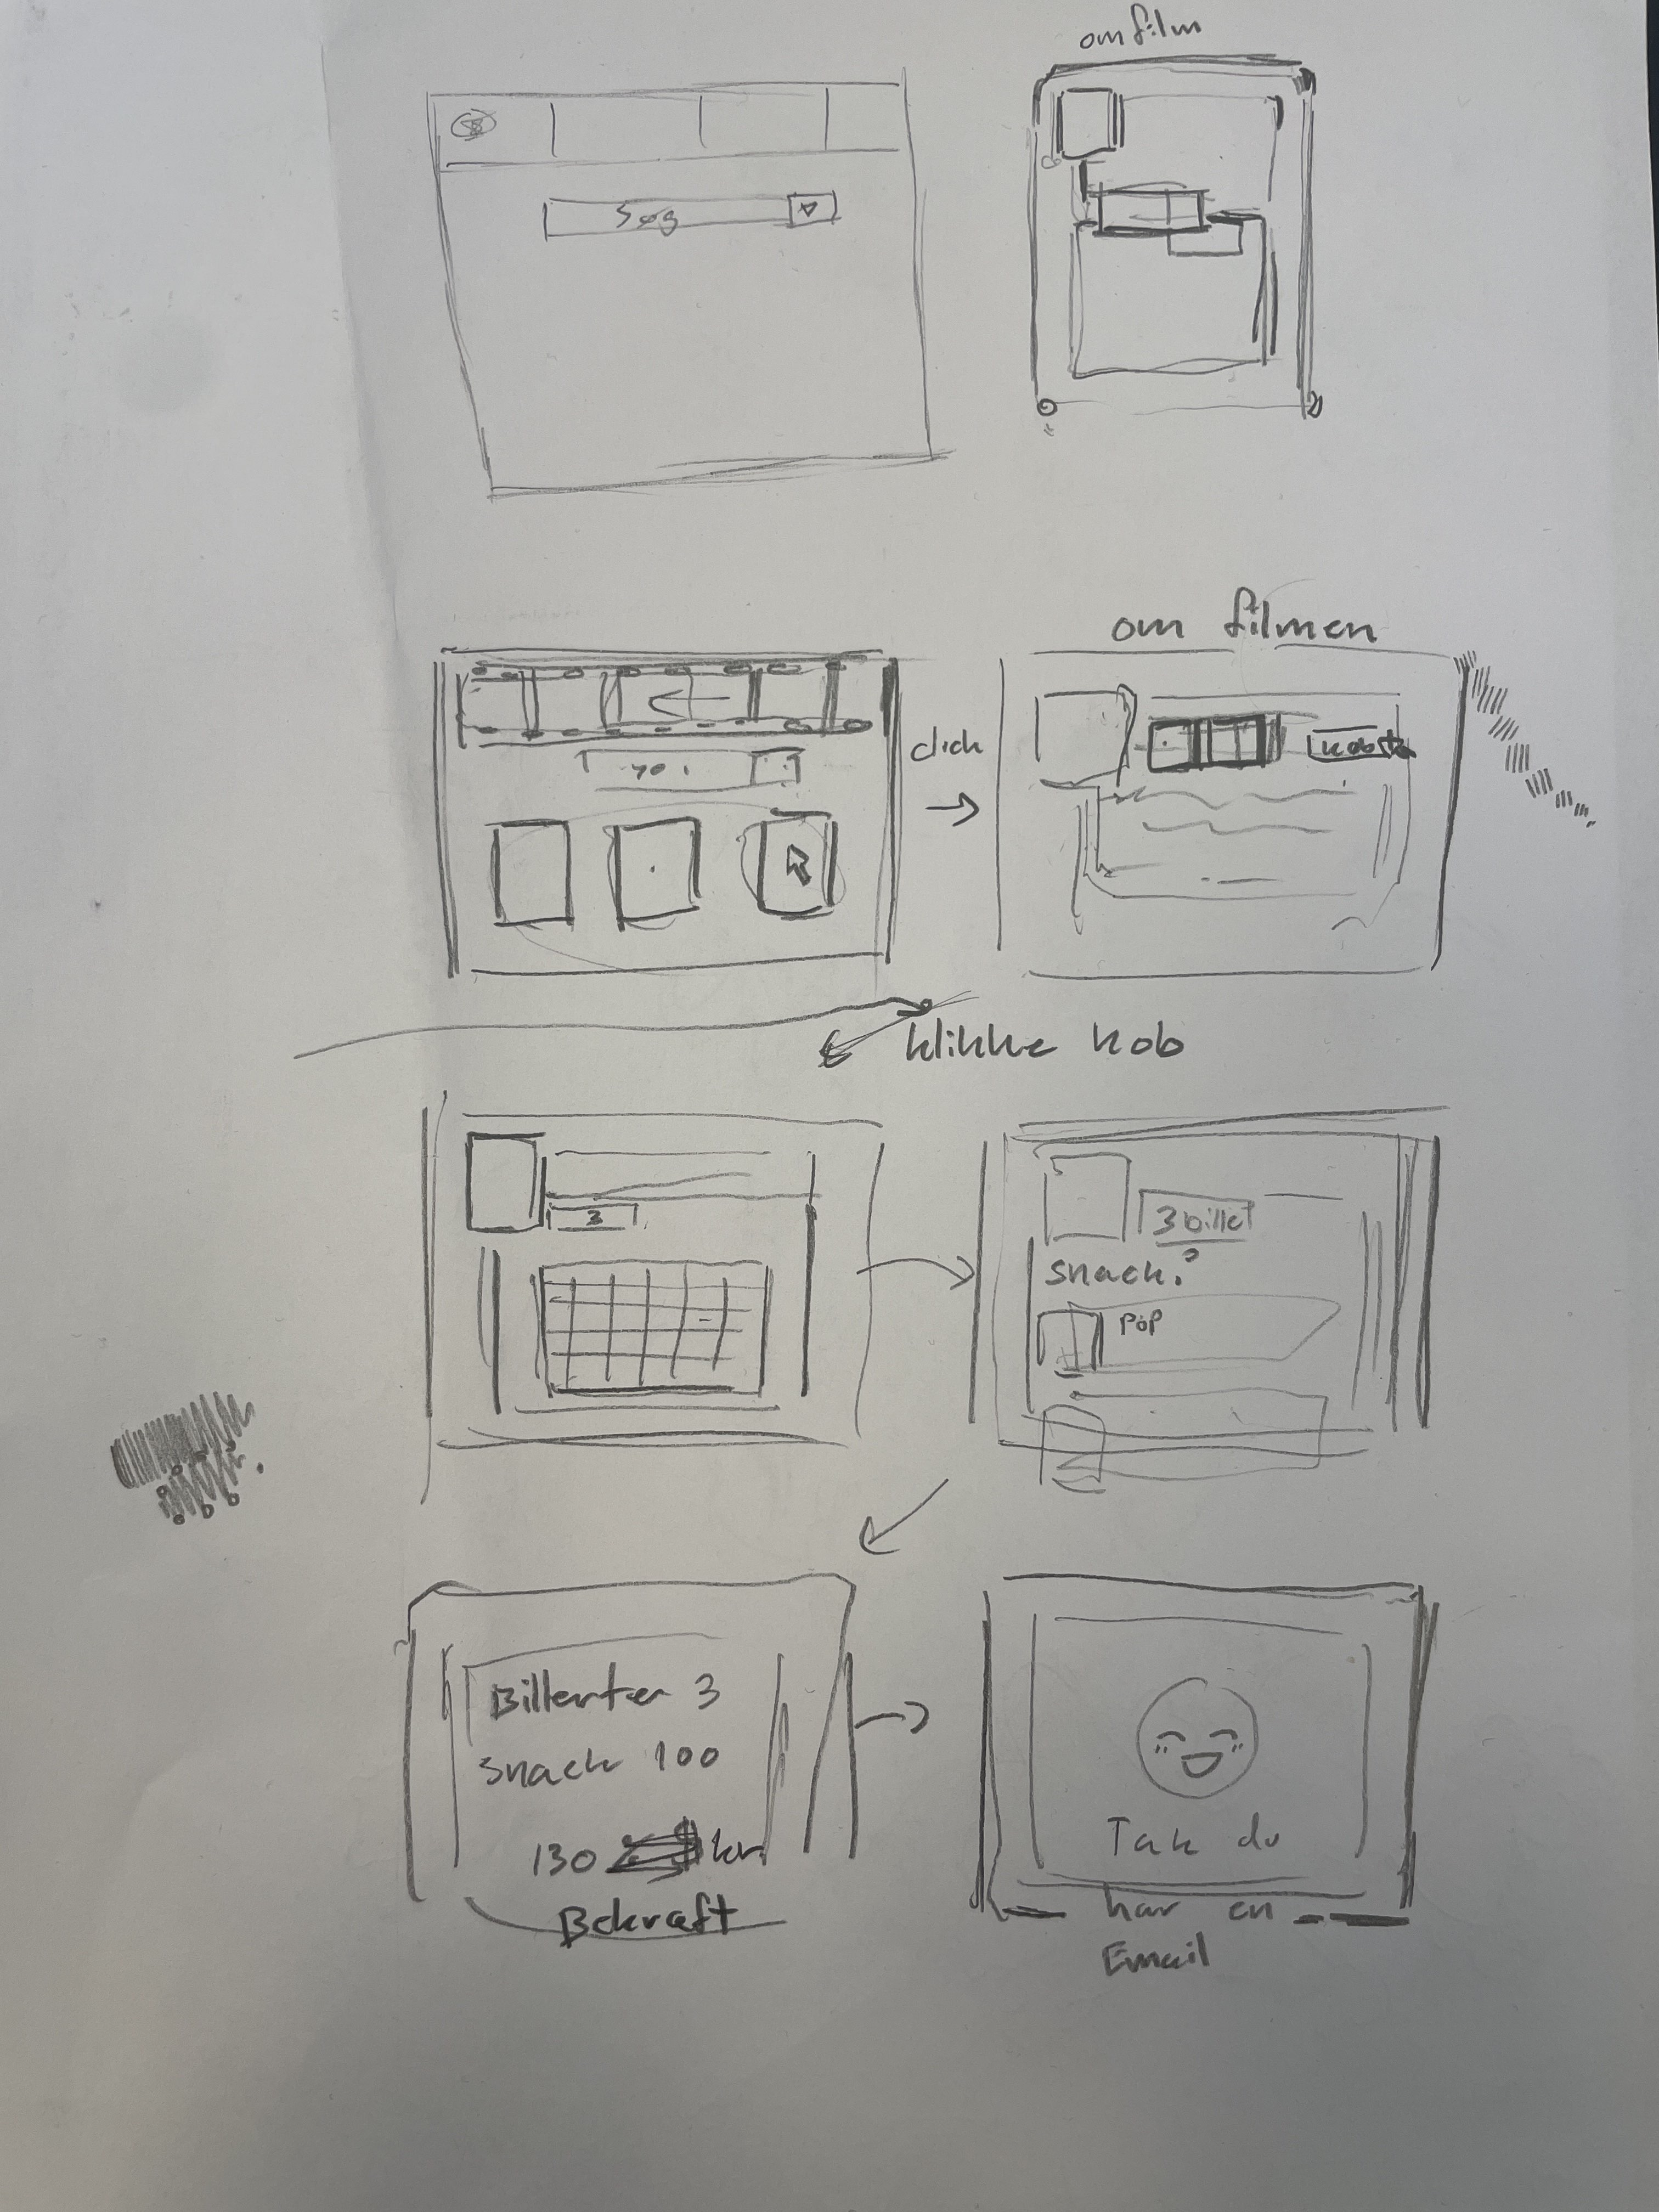 om film
Søg
om filmen
click
klikke kob
3
3 billet
snack?
pop
Billerter 3
Snack 100
130 kr.
Bekraft
Tak du
har en
Email